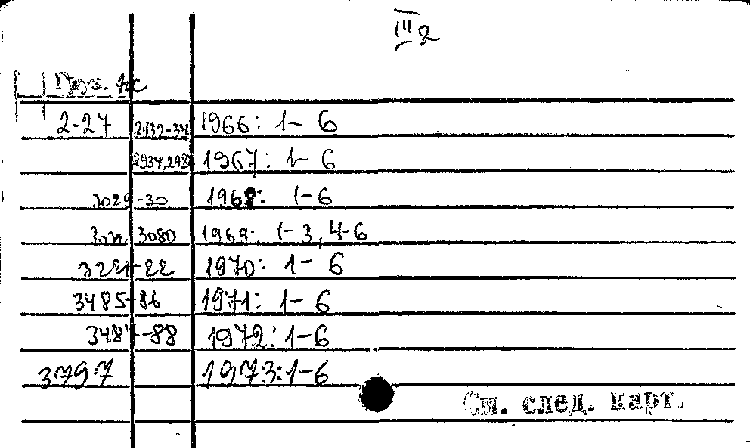 III 2
2-27 2132-34 1966: 1-6
1967: 1-6
3029-30 1968: 1-6
3080 1969: 1-3, 4-6
3221-22 1970: 1-6
3485-86 1971: 1-6
3487-88 1972: 1-6
3797 1973: 1-6
См. след. карт.